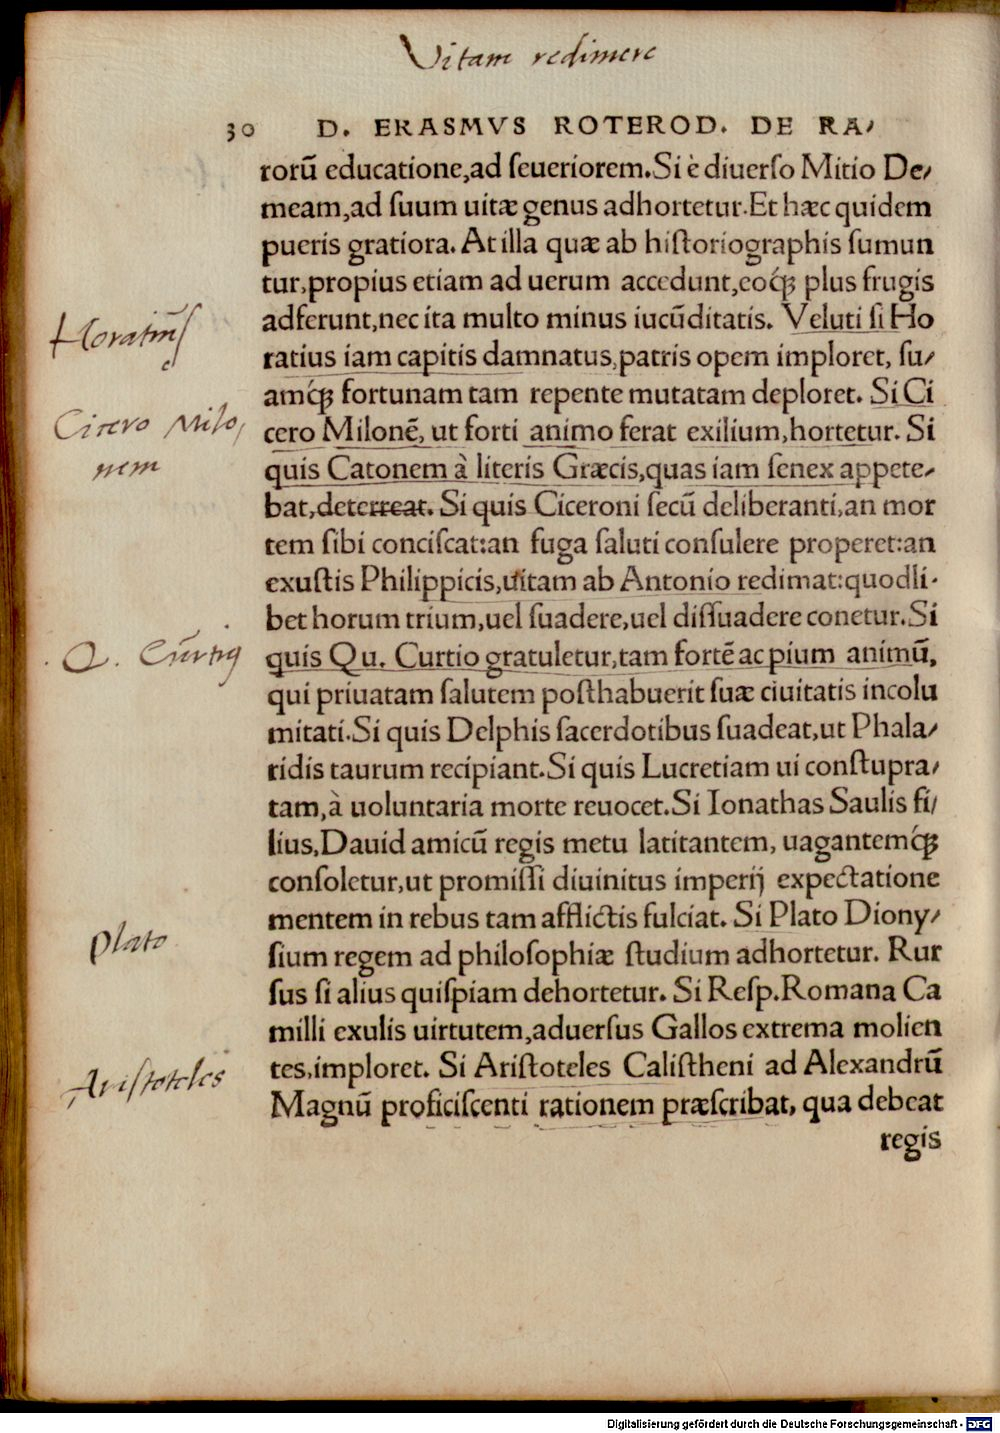 Vitam redimere
30 D. ERASMVS ROTEROD. DE RA/
rorũ educatione,ad ſeueriorem.Si è diuerſo Mitio De/
meam,ad ſuum uitæ genus adhortetur.Et hæc quidem
pueris gratiora. At illa quæ ab hiſtoriographis ſumun
tur,propius etiam ad uerum accedunt,eoq́ꝫ plus frugis
adferunt,nec ita multo minus iucũditatis. Veluti ſi Ho
Horatius
ratius iam capitis damnatus,patris opem imploret, ſu/
amq́ꝫ fortunam tam repente mutatam deploret. Si Ci
Cicero Milo,
cero Milonẽ, ut forti animo ferat exilium,hortetur. Si
nem
quis Catonem à literis Græcis,quas iam ſenex appete/
bat,deterreat. Si quis Ciceroni ſecũ deliberanti,an mor
tem ſibi conciſcat:an fuga ſaluti conſulere properet:an
exuſtis Philippicis,uitam ab Antonio redimat:quodli-
bet horum trium,uel ſuadere,uel diſſuadere conetur.Si
Q. Curtiꝰ
quis Qu. Curtio gratuletur,tam fortẽ ac pium animũ,
qui priuatam ſalutem poſthabuerit ſuæ ciuitatis incolu
mitati.Si quis Delphis ſacerdotibus ſuadeat,ut Phala/
ridis taurum recipiant.Si quis Lucretiam ui conſtupra/
tam,à uoluntaria morte reuocet.Si Ionathas Saulis fi/
lius,Dauid amicũ regis metu latitantem, uagantemq́ꝫ
conſoletur,ut promiſſi diuinitus imperij expectatione
mentem in rebus tam afflictis fulciat. Si Plato Diony/
Plato
ſium regem ad philoſophiæ ſtudium adhortetur. Rur
ſus ſi alius quiſpiam dehortetur. Si Reſp.Romana Ca
milli exulis uirtutem,aduerſus Gallos extrema molien
tes,imploret. Si Ariſtoteles Caliſtheni ad Alexandrũ
Ariſtoteles
Magnũ proficiſcenti rationem præſcribat, qua debeat
regis
Digitalisierung gefördert durch die Deutsche Forschungsgemeinschaft - DFG